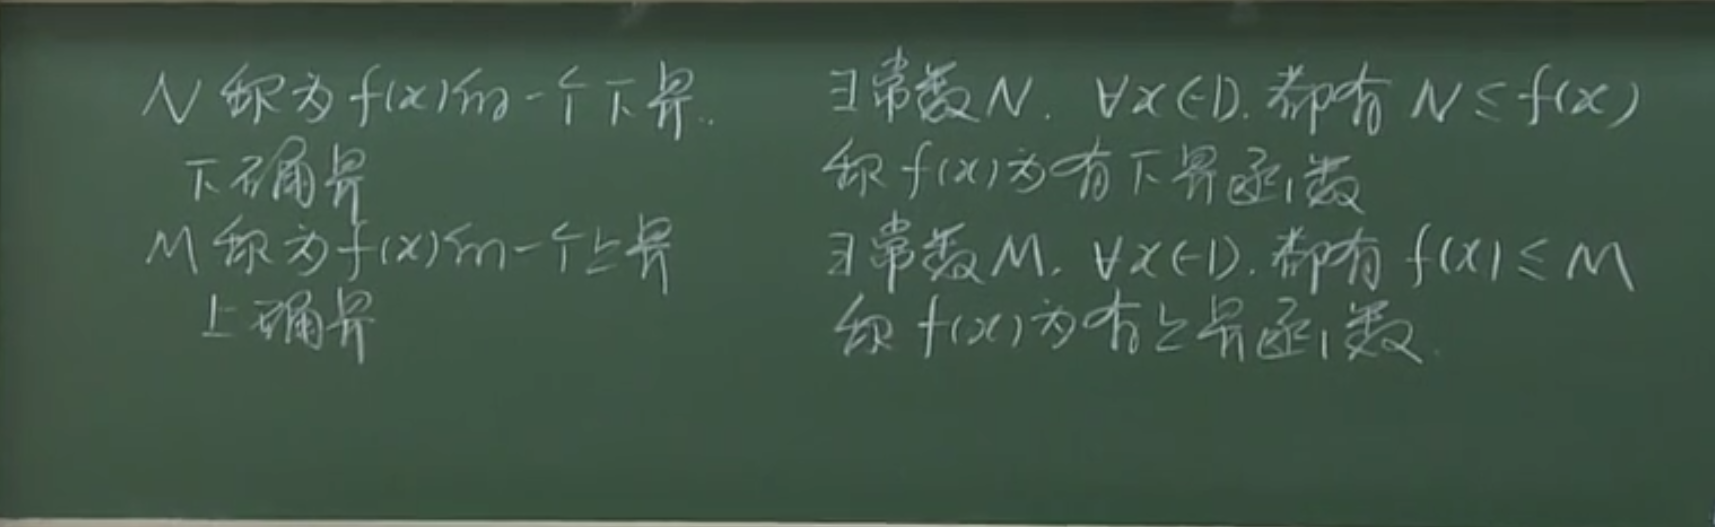 N 称为 f(x) 的一个下界.
下确界
M 称为 f(x) 的一个上界
上确界
∃常数 N. ∀x∈D. 都有 N ≤ f(x)
称 f(x) 为有下界函数
∃常数 M. ∀x∈D. 都有 f(x) ≤ M
称 f(x) 为有上界函数.